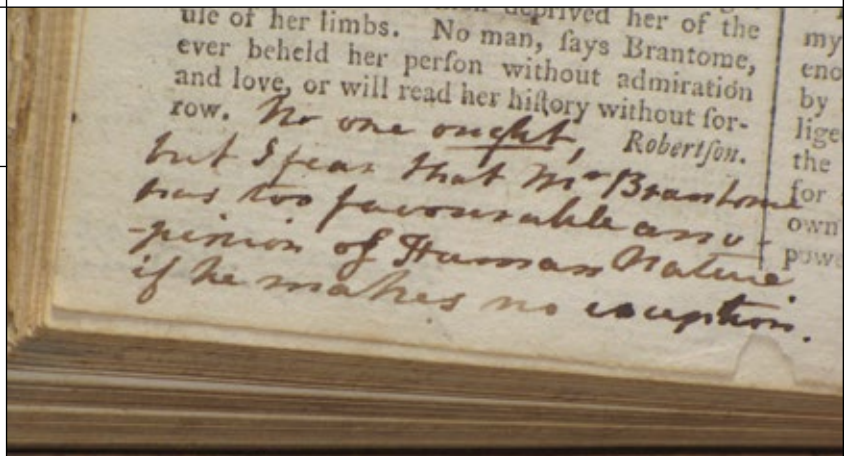 deprived her of the
uſe of her limbs. No man, ſays Brantome,
ever beheld her perſon without admiration
and love, or will read her hiſtory without ſor-
row. No one ought,
Robertſon.
but I fear that Mr Brantome
has too favourable an o-
-pinion of Human Nature
if he makes no exception.
my
eno
by
lige
the
for
own
powe